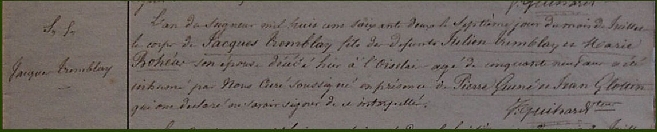 S. L.
Jacque Tremblay
L'an du Seigneur mil huit cent soixante deux le Septième jour du mois de Juillet
le corps de Jacques Tremblay fils de defunts Julien Tremblay et Marie
son épouse décédé hier à l'Oiselai agé de cinquante neuf ans a été
inhumé par Nous Curé Soussigné en présence de Pierre et Jean
qui ont déclaré ne savoir signer de ce interpellés.
F. Guihard